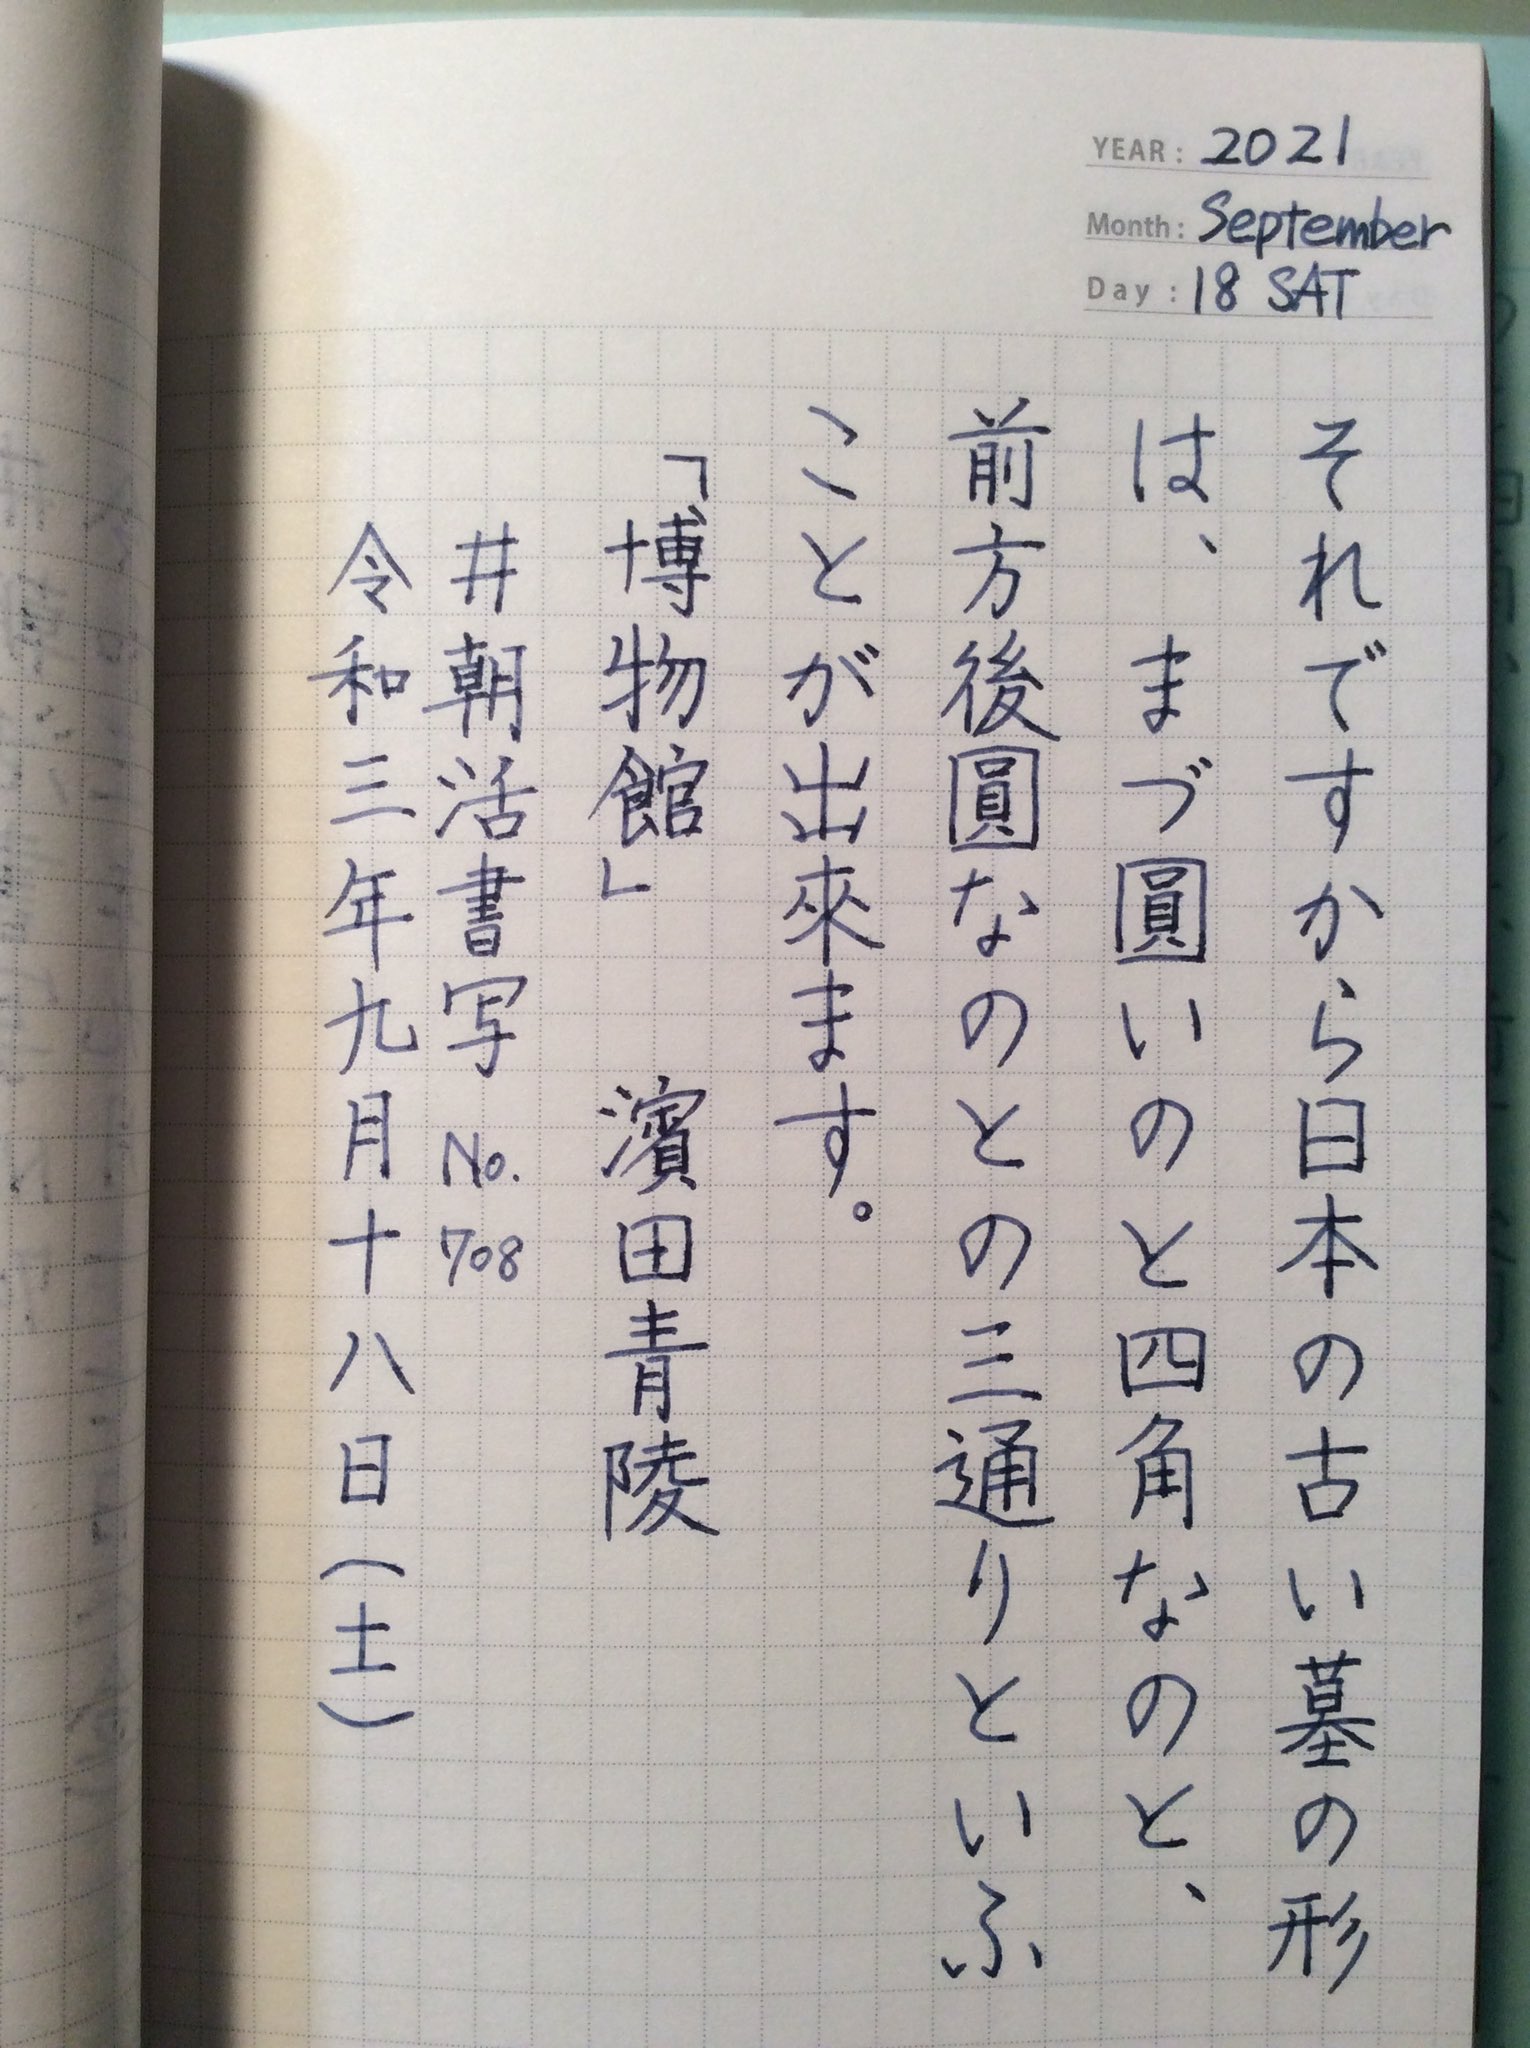 YEAR: 2021
Month: September
Day: 18 SAT
それですから日本の古い墓の形
は、まづ圓いのと四角なのと、
前方後圓なのとの三通りといふ
ことが出來ます。
「博物館」 濱田青陵
#朝活書写 No. 708
令和三年九月十八日(土)